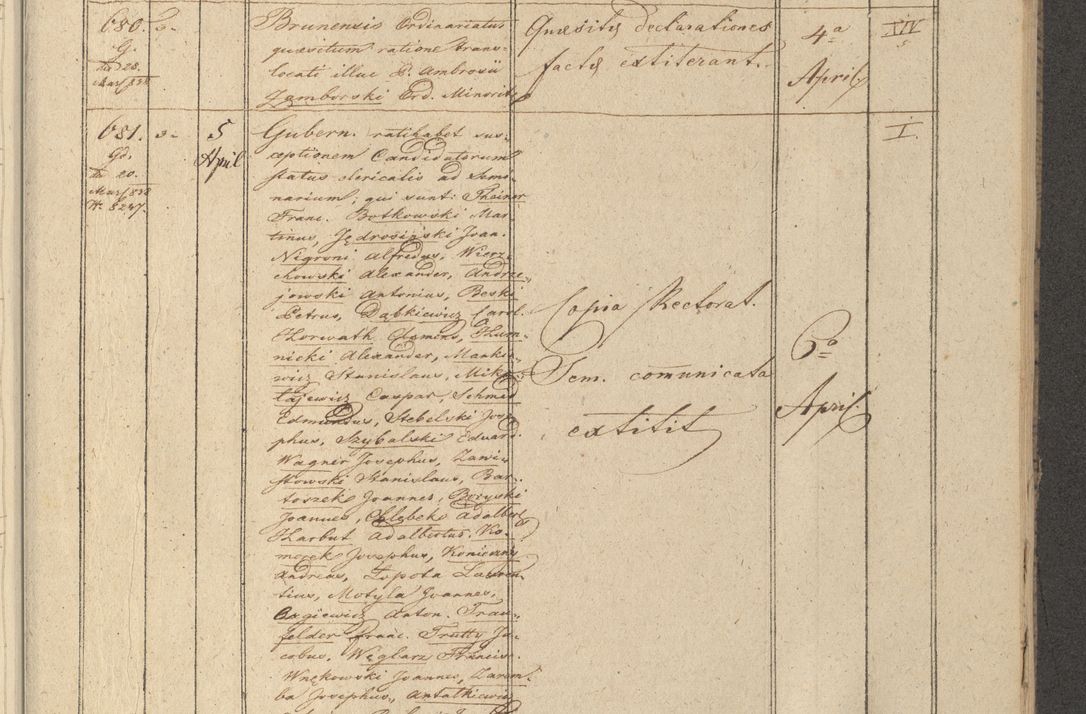 680. 3.
G.
dto 28.
Mar. 838
Brunensis Ordinariatus
quaesitum ratione trans-
locati illuc P. Ambrosii
Zamborski Ord. Minorit.
Quaesitis declarationes
factis extiterant.
4a
April.
IV
681. 3-
Gd.
dto 20.
Mar. 838
N. 8247.
5
April
Gubern. ratihabet sus-
ceptionem Candidatorum
status clericalis ad Semi-
narium, qui sunt:
Franc. Botkowski Mar-
tinus, Jędrosiński Joan.
Nigroni Alfredus, Wierz-
chowski Alexander, Andrze-
jowski Antonius, Beski
Petrus, Dąbkiewicz Carol.
Horwath Clemens,
nicki Alexander, Mankie-
wicz Stanislaus, Miko-
łajewicz Caspar, Schmid
Edmundus, Stebelski Jose-
phus, Szybalski Eduard.
Wagner Josephus, Zawi-
stowski Stanislaus, Bar-
toszek Joannes, Boryski
Joannes, Adalbert
Harbut Adalbertus, Ko-
morek Josephus, Konieczny
Andreas, Łopota Lauren-
tius, Motyla Joannes,
Anton. Trau-
felder Franc. Trutty Ja-
cobus, Węglarz Francisc.
Wnękowski Joannes, Zarem-
ba Josephus, Antałkiewicz
Copia Rectorat.
Sem. comunicata
extitit
6a
April.
I.